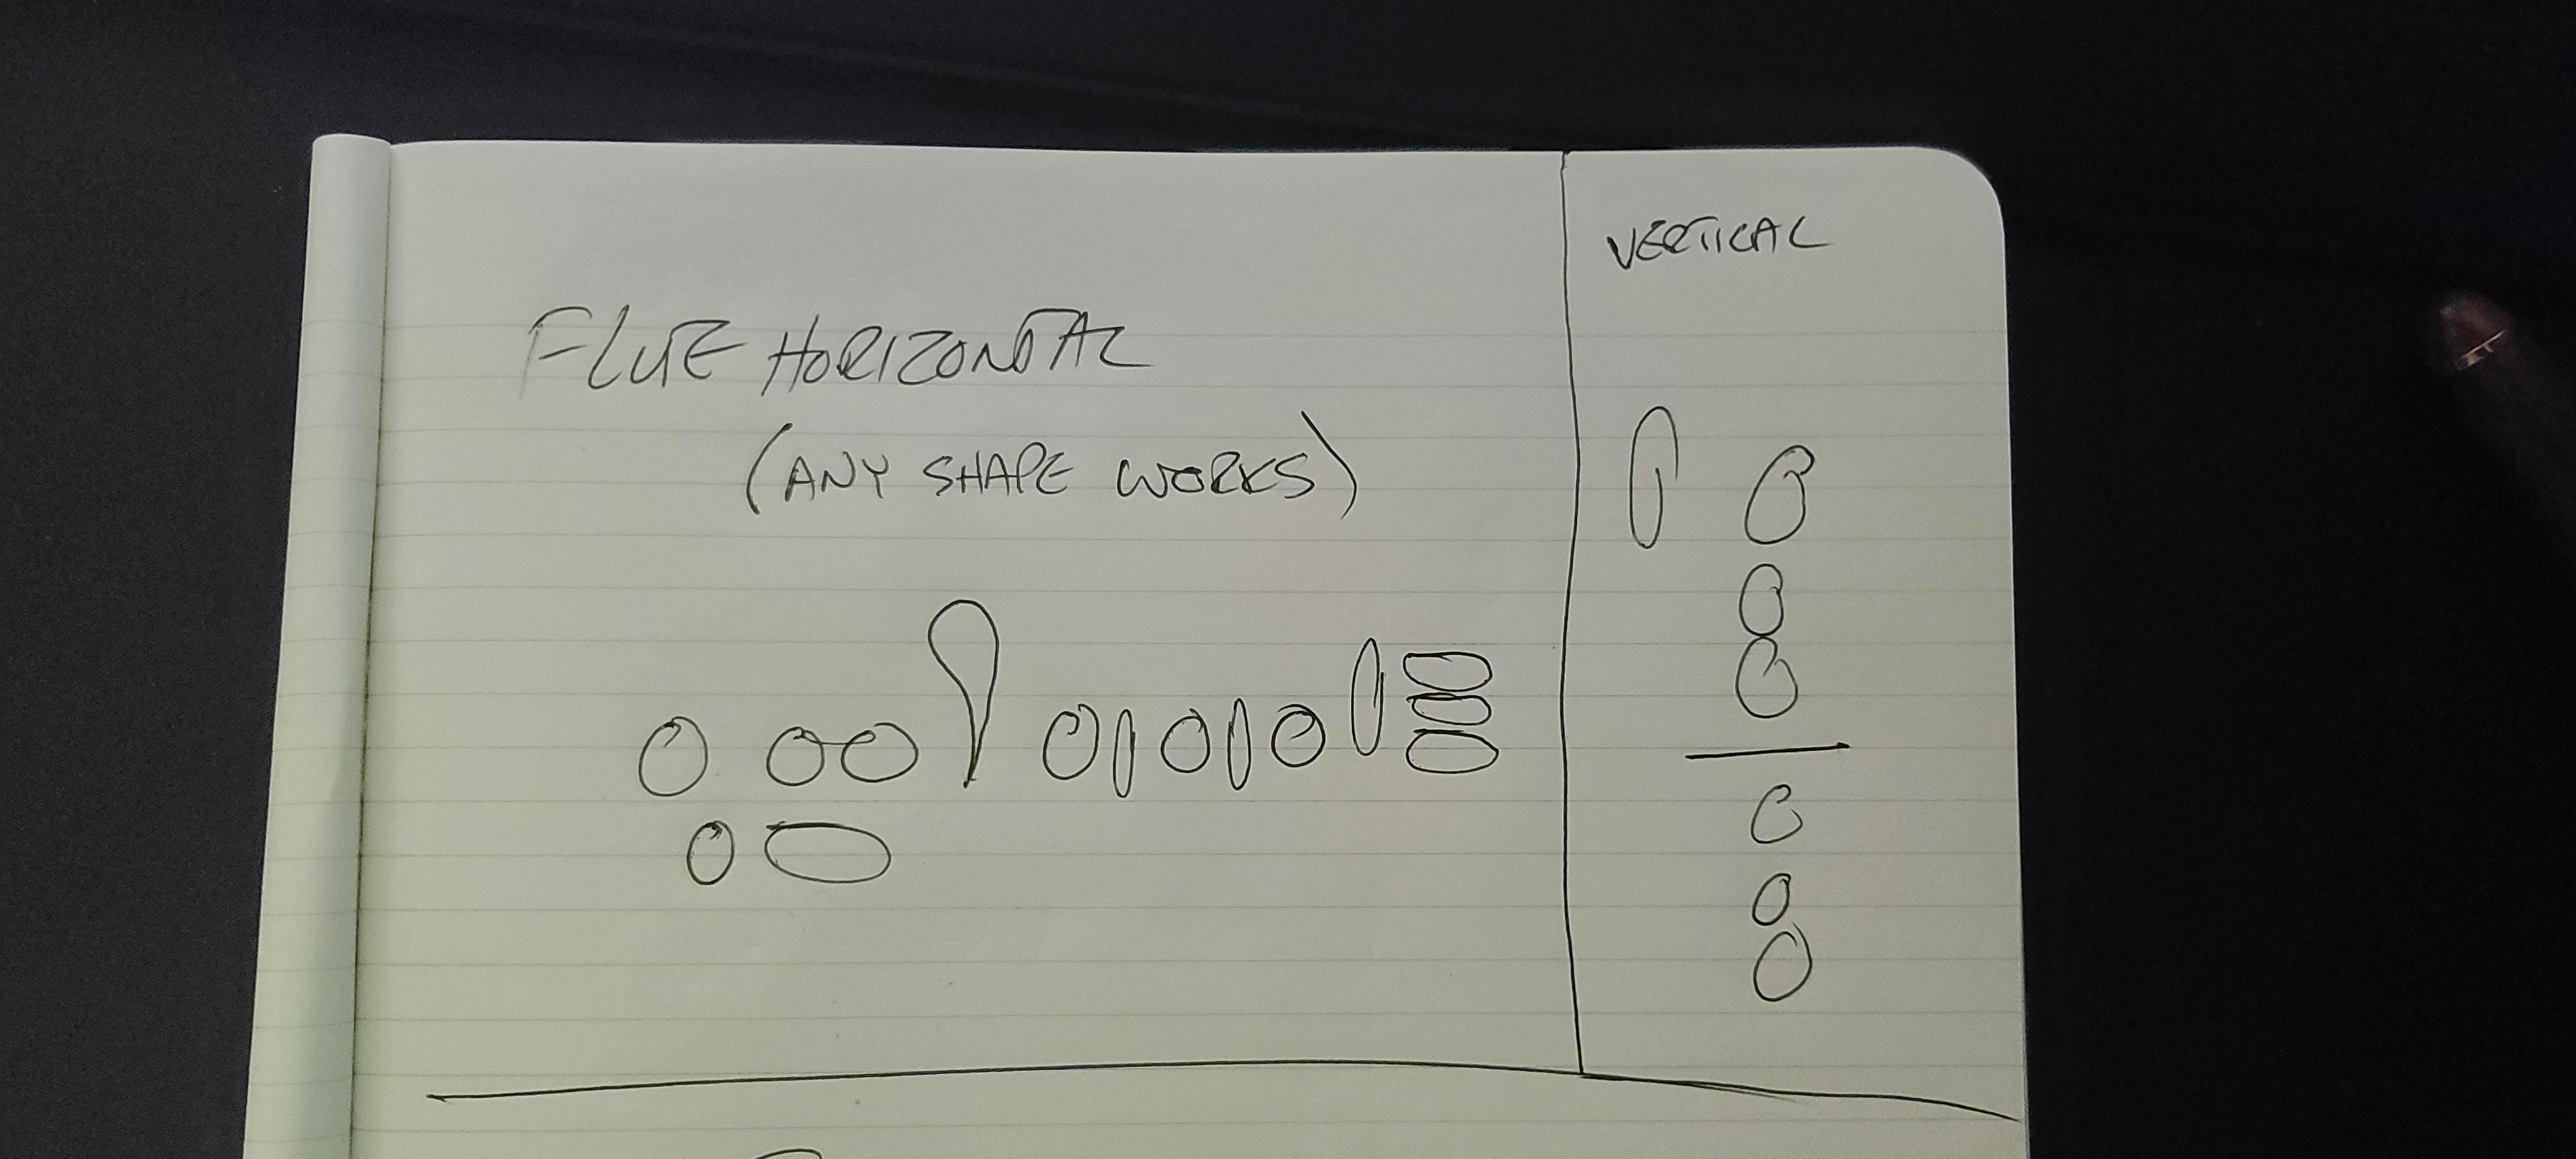 FLUTE HORIZONTAL
(ANY SHAPE WORKS)
VERTICAL